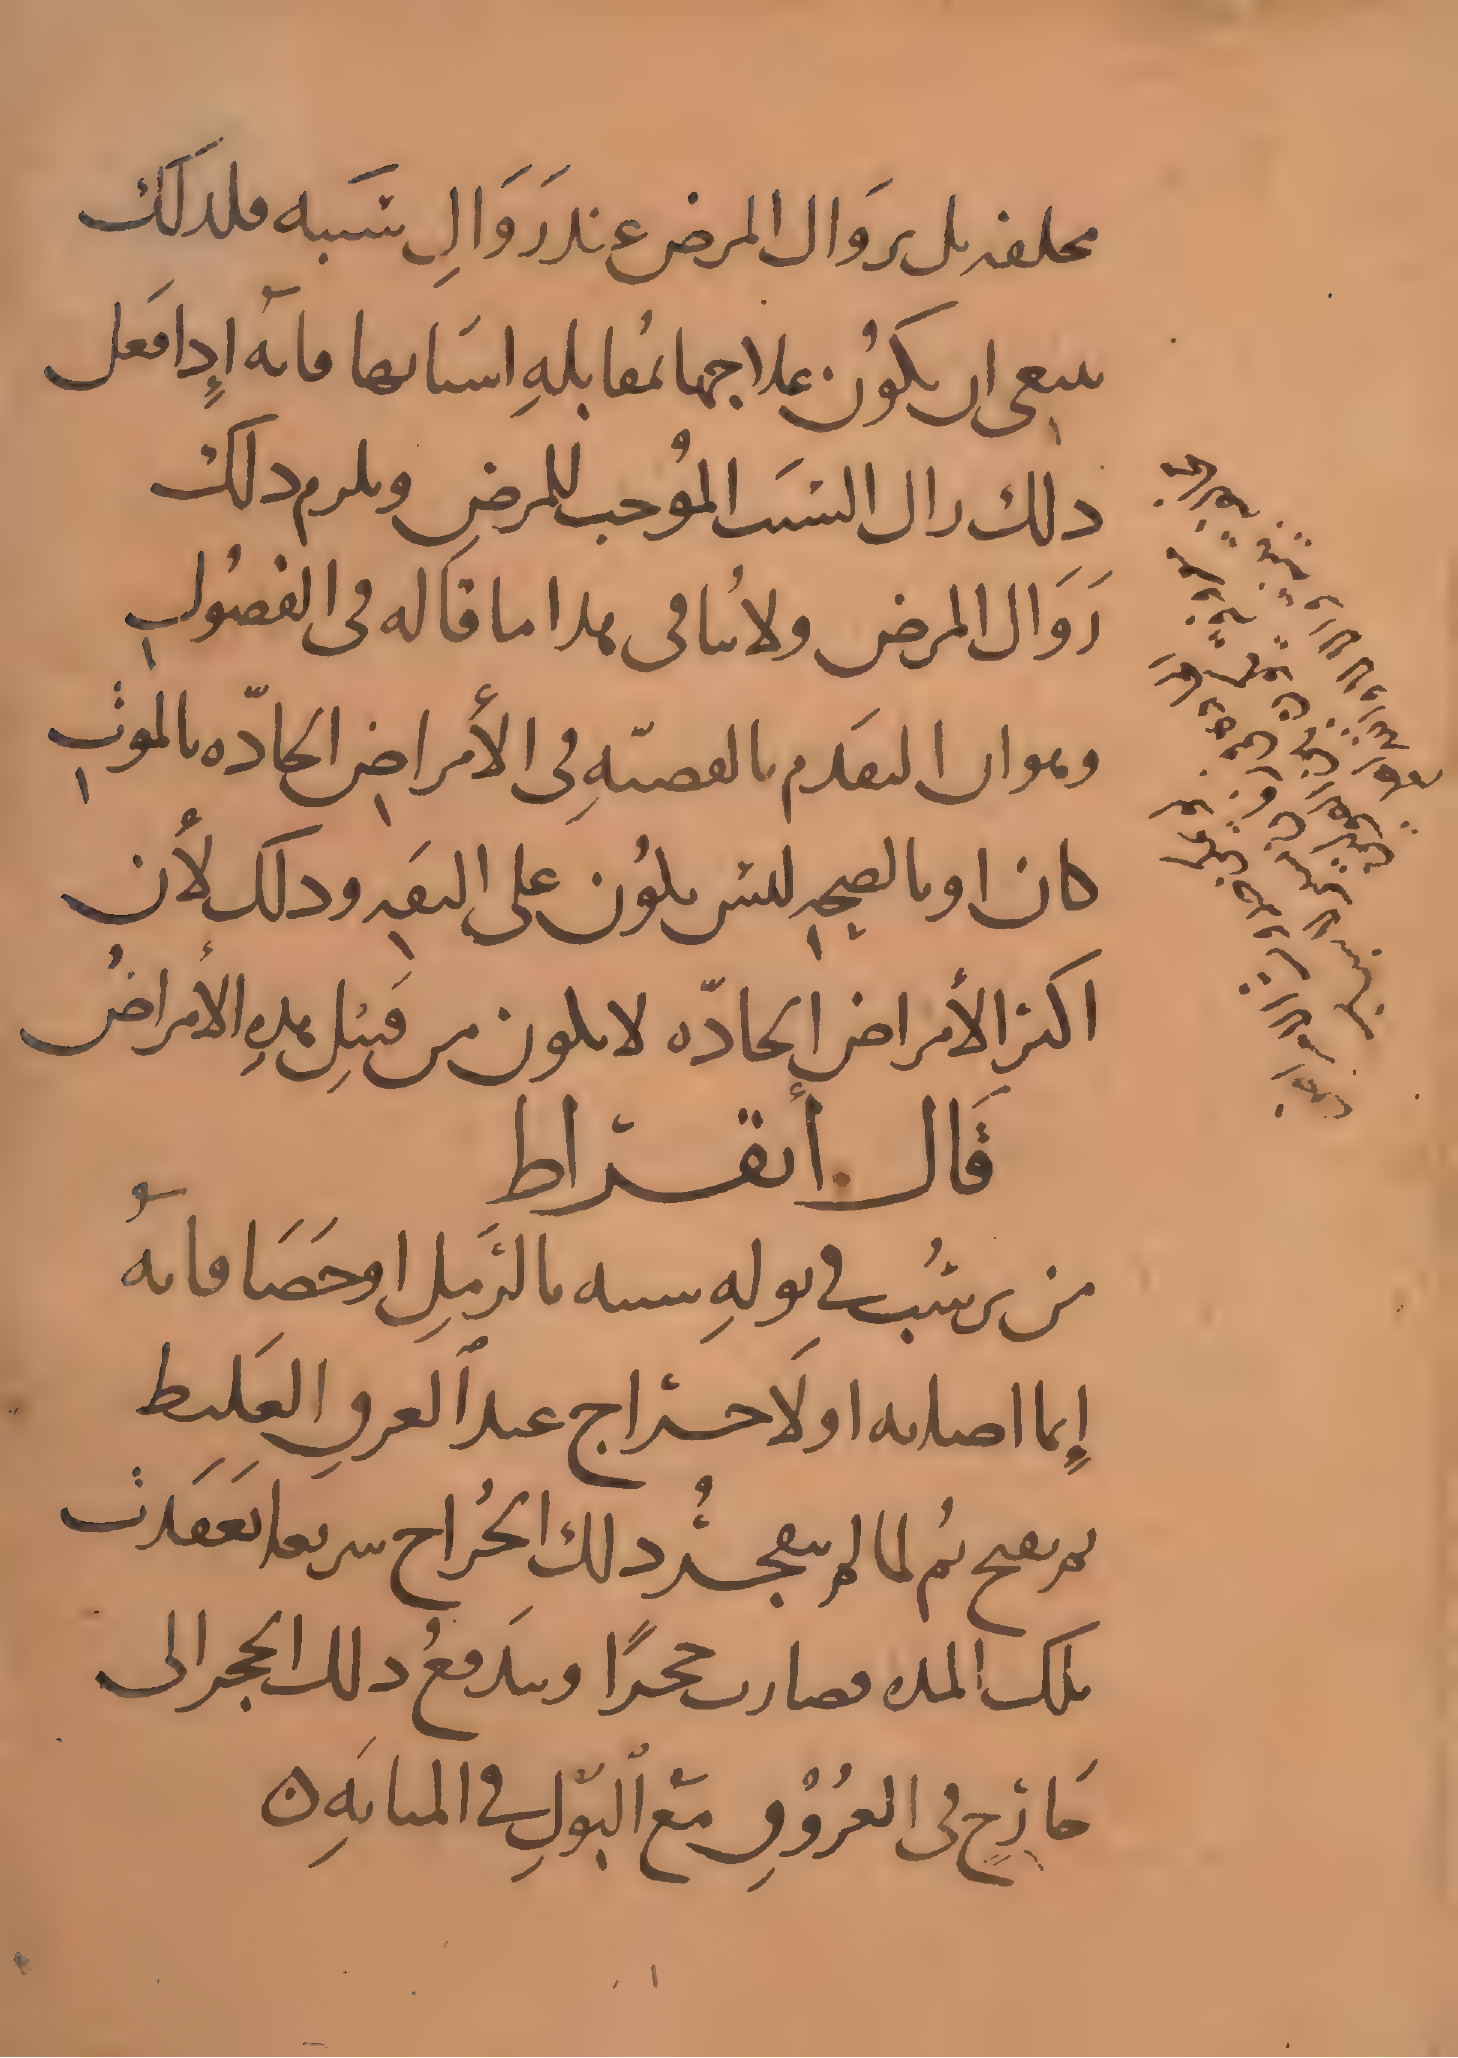 مختلفه بل يزوال المرض عند زَوَالِ سَببه فلذلك
ينبغى ان يكون علاجها بمُقابلهِ اسبَابها فانهُ إِذا فعل
ذلك زال السَبب المُوجب للمرض ويلزم ذلك
زَوَال المرض ولا يُنافى هذا ما قَاله فى الفصُول
وهو ان التقَدم بالقضيّهِ فى الأمراض الحادّه بالموت
كان او بالصِحه ليس يكُون على الثقَه وذلك لأن
اكثر الأمراض الحادّه لا يكون من قَبلِ هذهِ الأمراضُ
قَال أبقراط
من يرسُب فى بولهِ شبيه بالرَملِ او حَصَا فانهُ
إِنما اصابه اولَا خراج عند العرقِ الغَليظ
ثم تقيح ثم لما لم ينفجرُ ذلك الخُراج سريعا تعَقدت
تلك المده فصارت حجرًا ويندفعُ ذلك الحجر الى
خَارِجٍ فى العُرُوقِ مَع البَوّلِ فى المثانَهِ ن